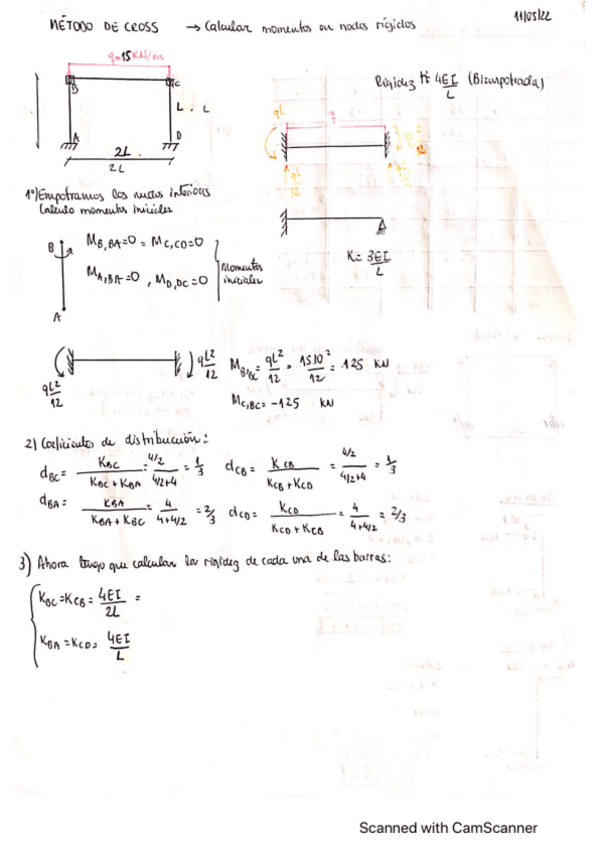 11/05/22
MÉTODO DE CROSS → Calcular momentos en nodos rígidos
q=15 KN/m
B C
L . L
A D
2L
2L
Rigidez 4EI/L (Biempotrada)
q
qL²/12
K= 3EI/L
1º) Empotramos los nudos interiores
Calculo momentos iniciales
B
A
M_B,BA=0 = M_C,CD=0
M_A,BA=0 , M_D,DC=0
Momentos iniciales
qL²/12
qL²/12
M_B,BC = qL²/12 = 15.10²/12 = 125 KN
M_C,BC = -125 KN
2) Coeficientes de distribución:
d_BC = K_BC/(K_BC + K_BA) = (4/2)/(4/2+4) = 1/3 d_CB = K_CB/(K_CB + K_CD) = (4/2)/(4/2+4) = 1/3
d_BA = K_BA/(K_BA + K_BC) = 4/(4+4/2) = 2/3 d_CD = K_CD/(K_CD + K_CB) = 4/(4+4/2) = 2/3
3) Ahora tengo que calcular la rigidez de cada una de las barras:
K_BC = K_CB = 4EI/2L =
K_BA = K_CD = 4EI/L
Scanned with CamScanner